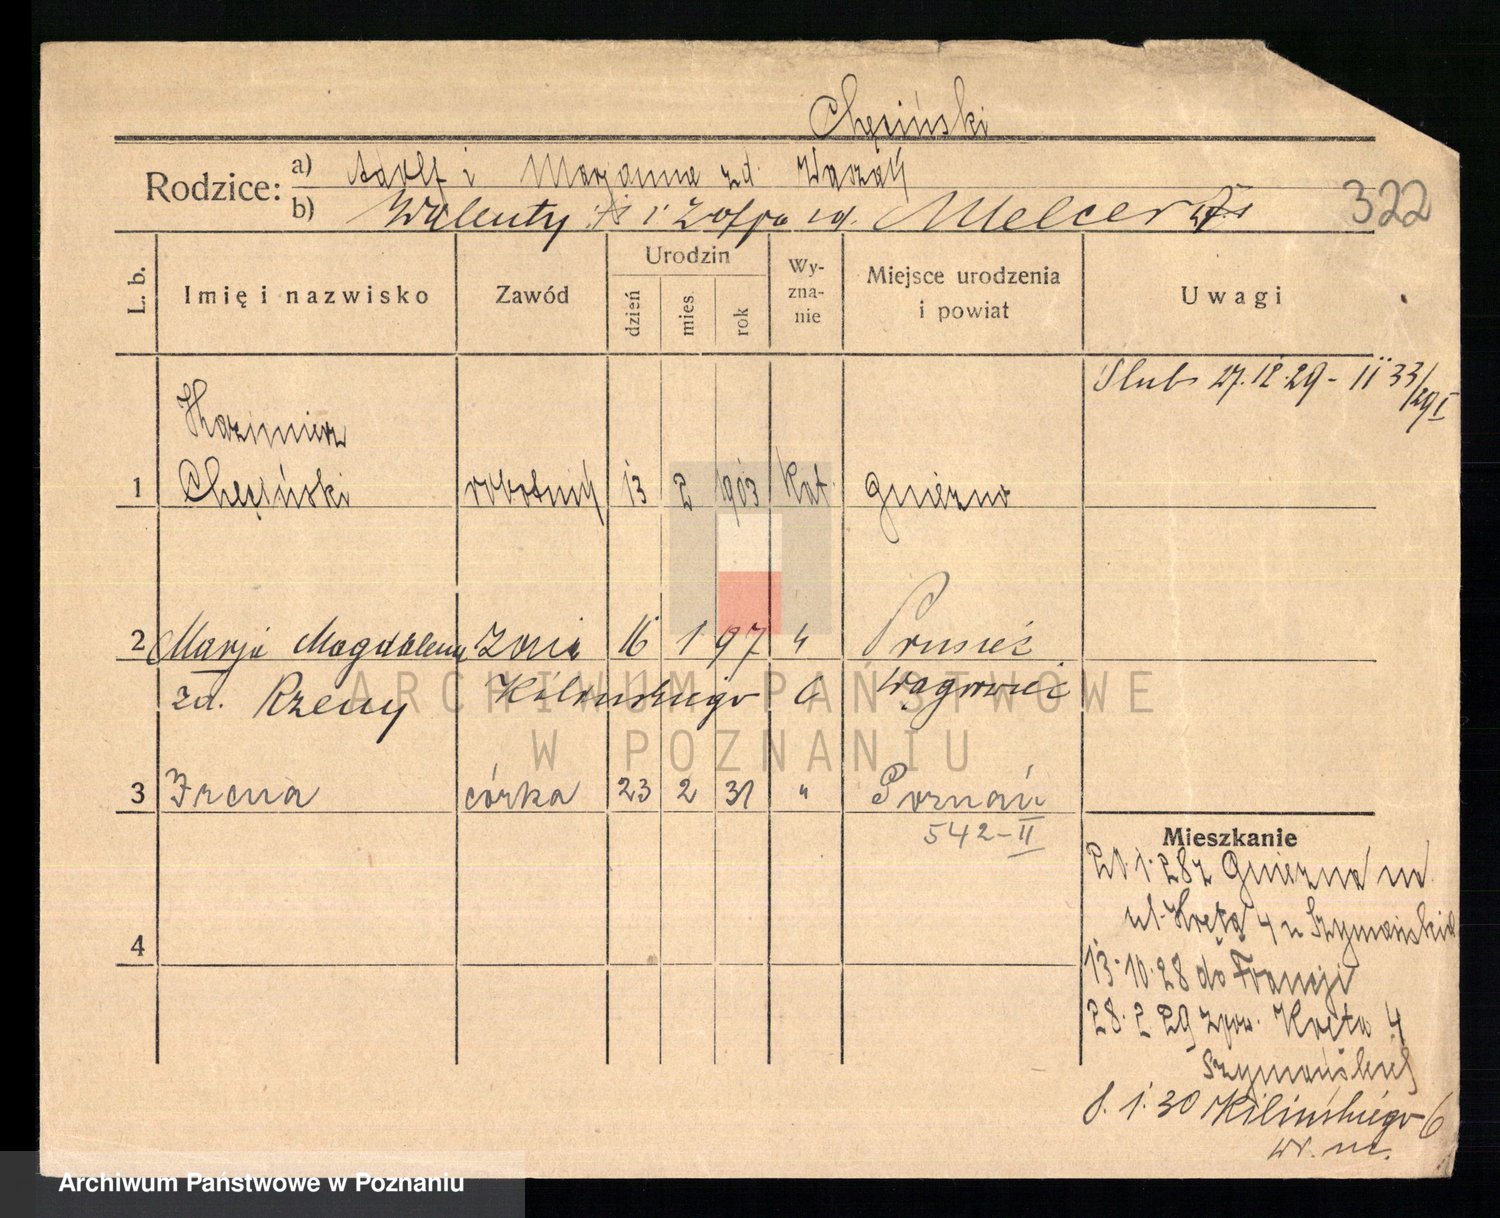 Chęciński
Rodzice:
a) Adolf i Marjanna zd.
b) Walenty i Zofja zd. Melcer
322
L. b.
Imię i nazwisko
Zawód
Urodzin
dzień
mies.
rok
Wy-
zna-
nie
Miejsce urodzenia
i powiat
Uwagi
Ślub 27.12.29 - II 33/29 I
Kazimierz
1 Chęciński robotnik 13 2 1903 Kat. Gniezno
2 Marja Magdalena żona 16 1 97 " Prusiec
zd. Rzeny Kilińskiego 6 Wągrowiec
3 Irena córka 23 2 31 " Poznań
542-II
4
Mieszkanie
21.1.28 z Gniezna na
ul. Kręta 4 u Szymański
13.10.28 do Francji
28.2 29 zpow. Kręta 4
Szymańskiej
8.1.30 Kilińskiego 6
w. m.
ARCHIWUM PAŃSTWOWE
W POZNANIU
Archiwum Państwowe w Poznaniu